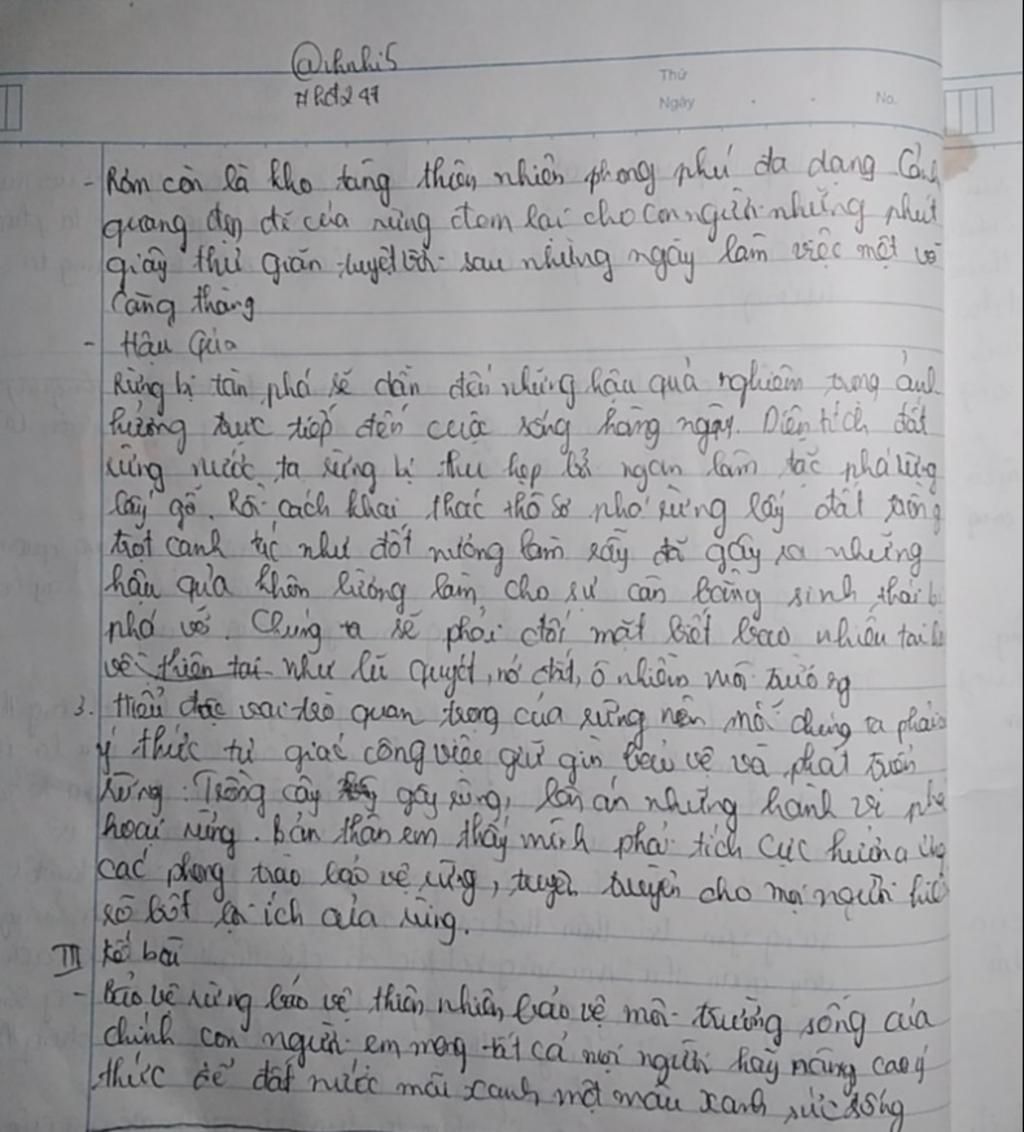 @ihnhi5
Thứ
Ngày . . No.
- Rừng còn là kho tàng thiên nhiên phong phú đa dạng Cảnh
quang đẹp đẽ của rừng đem lại cho con người những phút
giây thư giãn tuyệt vời sau những ngày làm việc mệt và
căng thẳng
- Hậu Qủa
Rừng bị tàn phá sẽ dẫn đến những hậu quả nghiêm trọng ảnh
hưởng trực tiếp đến cuộc sống hàng ngày. Diện tích đất
rừng nước ta rừng bị thu hẹp bởi ngạn lâm tặc phá rừng
lấy gỗ. Rồi cách khai thác thô sơ phá rừng lấy đất trồng
trọt canh tác như đốt nương làm rẫy đã gây ra những
hậu qủa khôn lường làm cho sự cân bằng sinh thái bị
phá vỡ. Chúng ta sẽ phải đối mặt biết bao nhiêu tai
về thiên tai như lũ quyét, nở đất, ô nhiễm môi trường
3. Hiểu được vai trò quan trọng của rừng nên mỗi chúng ta phải
ý thức tự giác công việc giữ gìn bảo vệ và phát triển
rừng. Trồng cây gây rừng, lên án những hành vi phá
hoại rừng. Bản thân em thấy mình phải tích cực hưởng ứng
các phong trào bảo vệ rừng, tuyên truyền cho mọi người hiểu
rõ biết lợi ích của rừng.
III Kết bài
- Bảo vệ rừng bảo vệ thiên nhiên, bảo vệ môi trường sống của
chính con người em mong tất cả mọi người hãy nâng cao ý
thức để đất nước mãi xanh một màu xanh sức sống